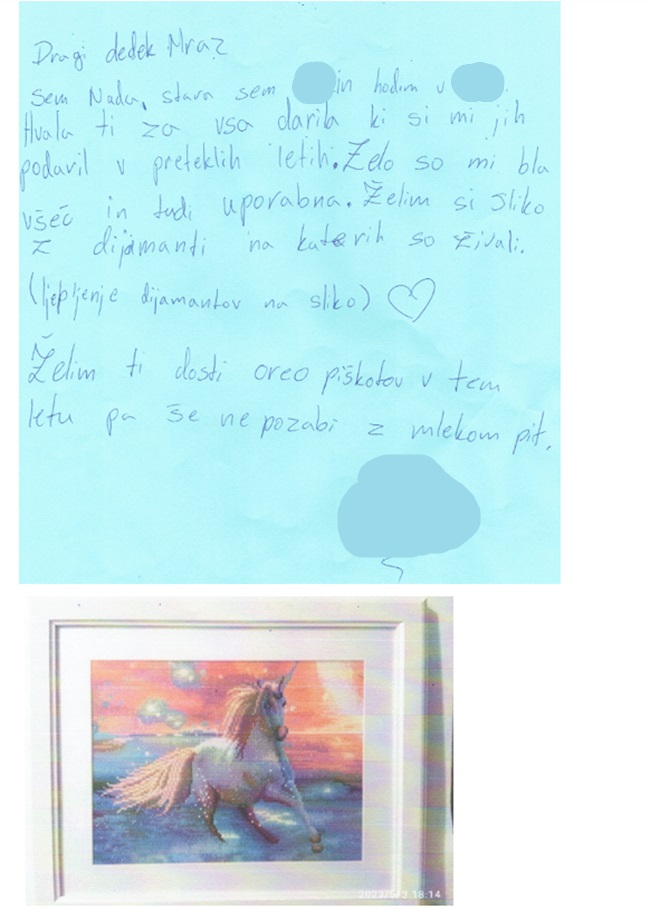 Dragi dedek Mraz
Sem Nada, stara sem in hodim v
Hvala ti za vsa darila ki si mi jih
podaril v preteklih letih. Zelo so mi bla
všeč in tudi uporabna. Želim si sliko
z dijamanti na katerih so živali.
(ljepljenje dijamantov na sliko)
Želim ti dosti oreo piškotov v tem
letu pa še ne pozabi z mlekom pit.
2023/5/3 18:14